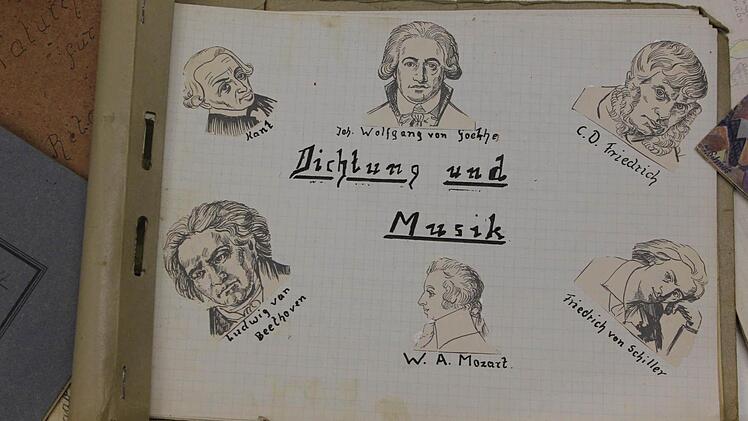 Kant
Joh. Wolfgang von Goethe
C. D. Friedrich
Dichtung und
Musik
Ludwig van
Beethoven
W. A. Mozart.
Friedrich von Schiller